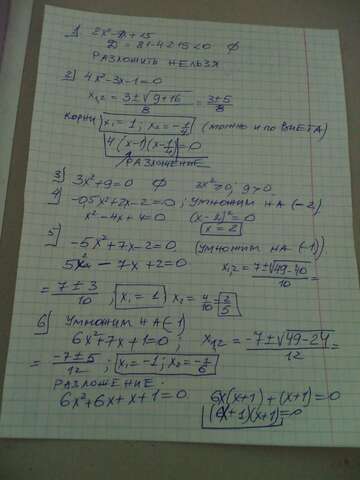 1) 2x²-9x+15
D=81-4·2·15<0 ∅
РАЗЛОЖИТЬ НЕЛЬЗЯ
2) 4x²-3x-1=0
x₁,₂ = (3±√(9+16))/8 = (3±5)/8
КОРНИ x₁=1; x₂=-1/4 (МОЖНО И ПО ВИЕТА)
4(x-1)(x-1/4)=0
РАЗЛОЖЕНИЕ
3) 3x²+9=0 ∅ 3x²≥0; 9>0
4) -0,5x²+2x-2=0; УМНОЖИМ НА (-2)
x²-4x+4=0 (x-2)²=0
x=2
5) -5x²+7x-2=0 (УМНОЖИМ НА (-1))
5x²-7x+2=0 x₁,₂ = (7±√(49-40))/10 =
= (7±3)/10; x₁=1 x₂=4/10=2/5
6) УМНОЖИМ НА (-1)
6x²+7x+1=0; x₁,₂ = (-7±√(49-24))/12 =
= (-7±5)/12; x₁=-1; x₂=-1/6
РАЗЛОЖЕНИЕ.
6x²+6x+x+1=0 6x(x+1)+(x+1)=0
(6x+1)(x+1)=0